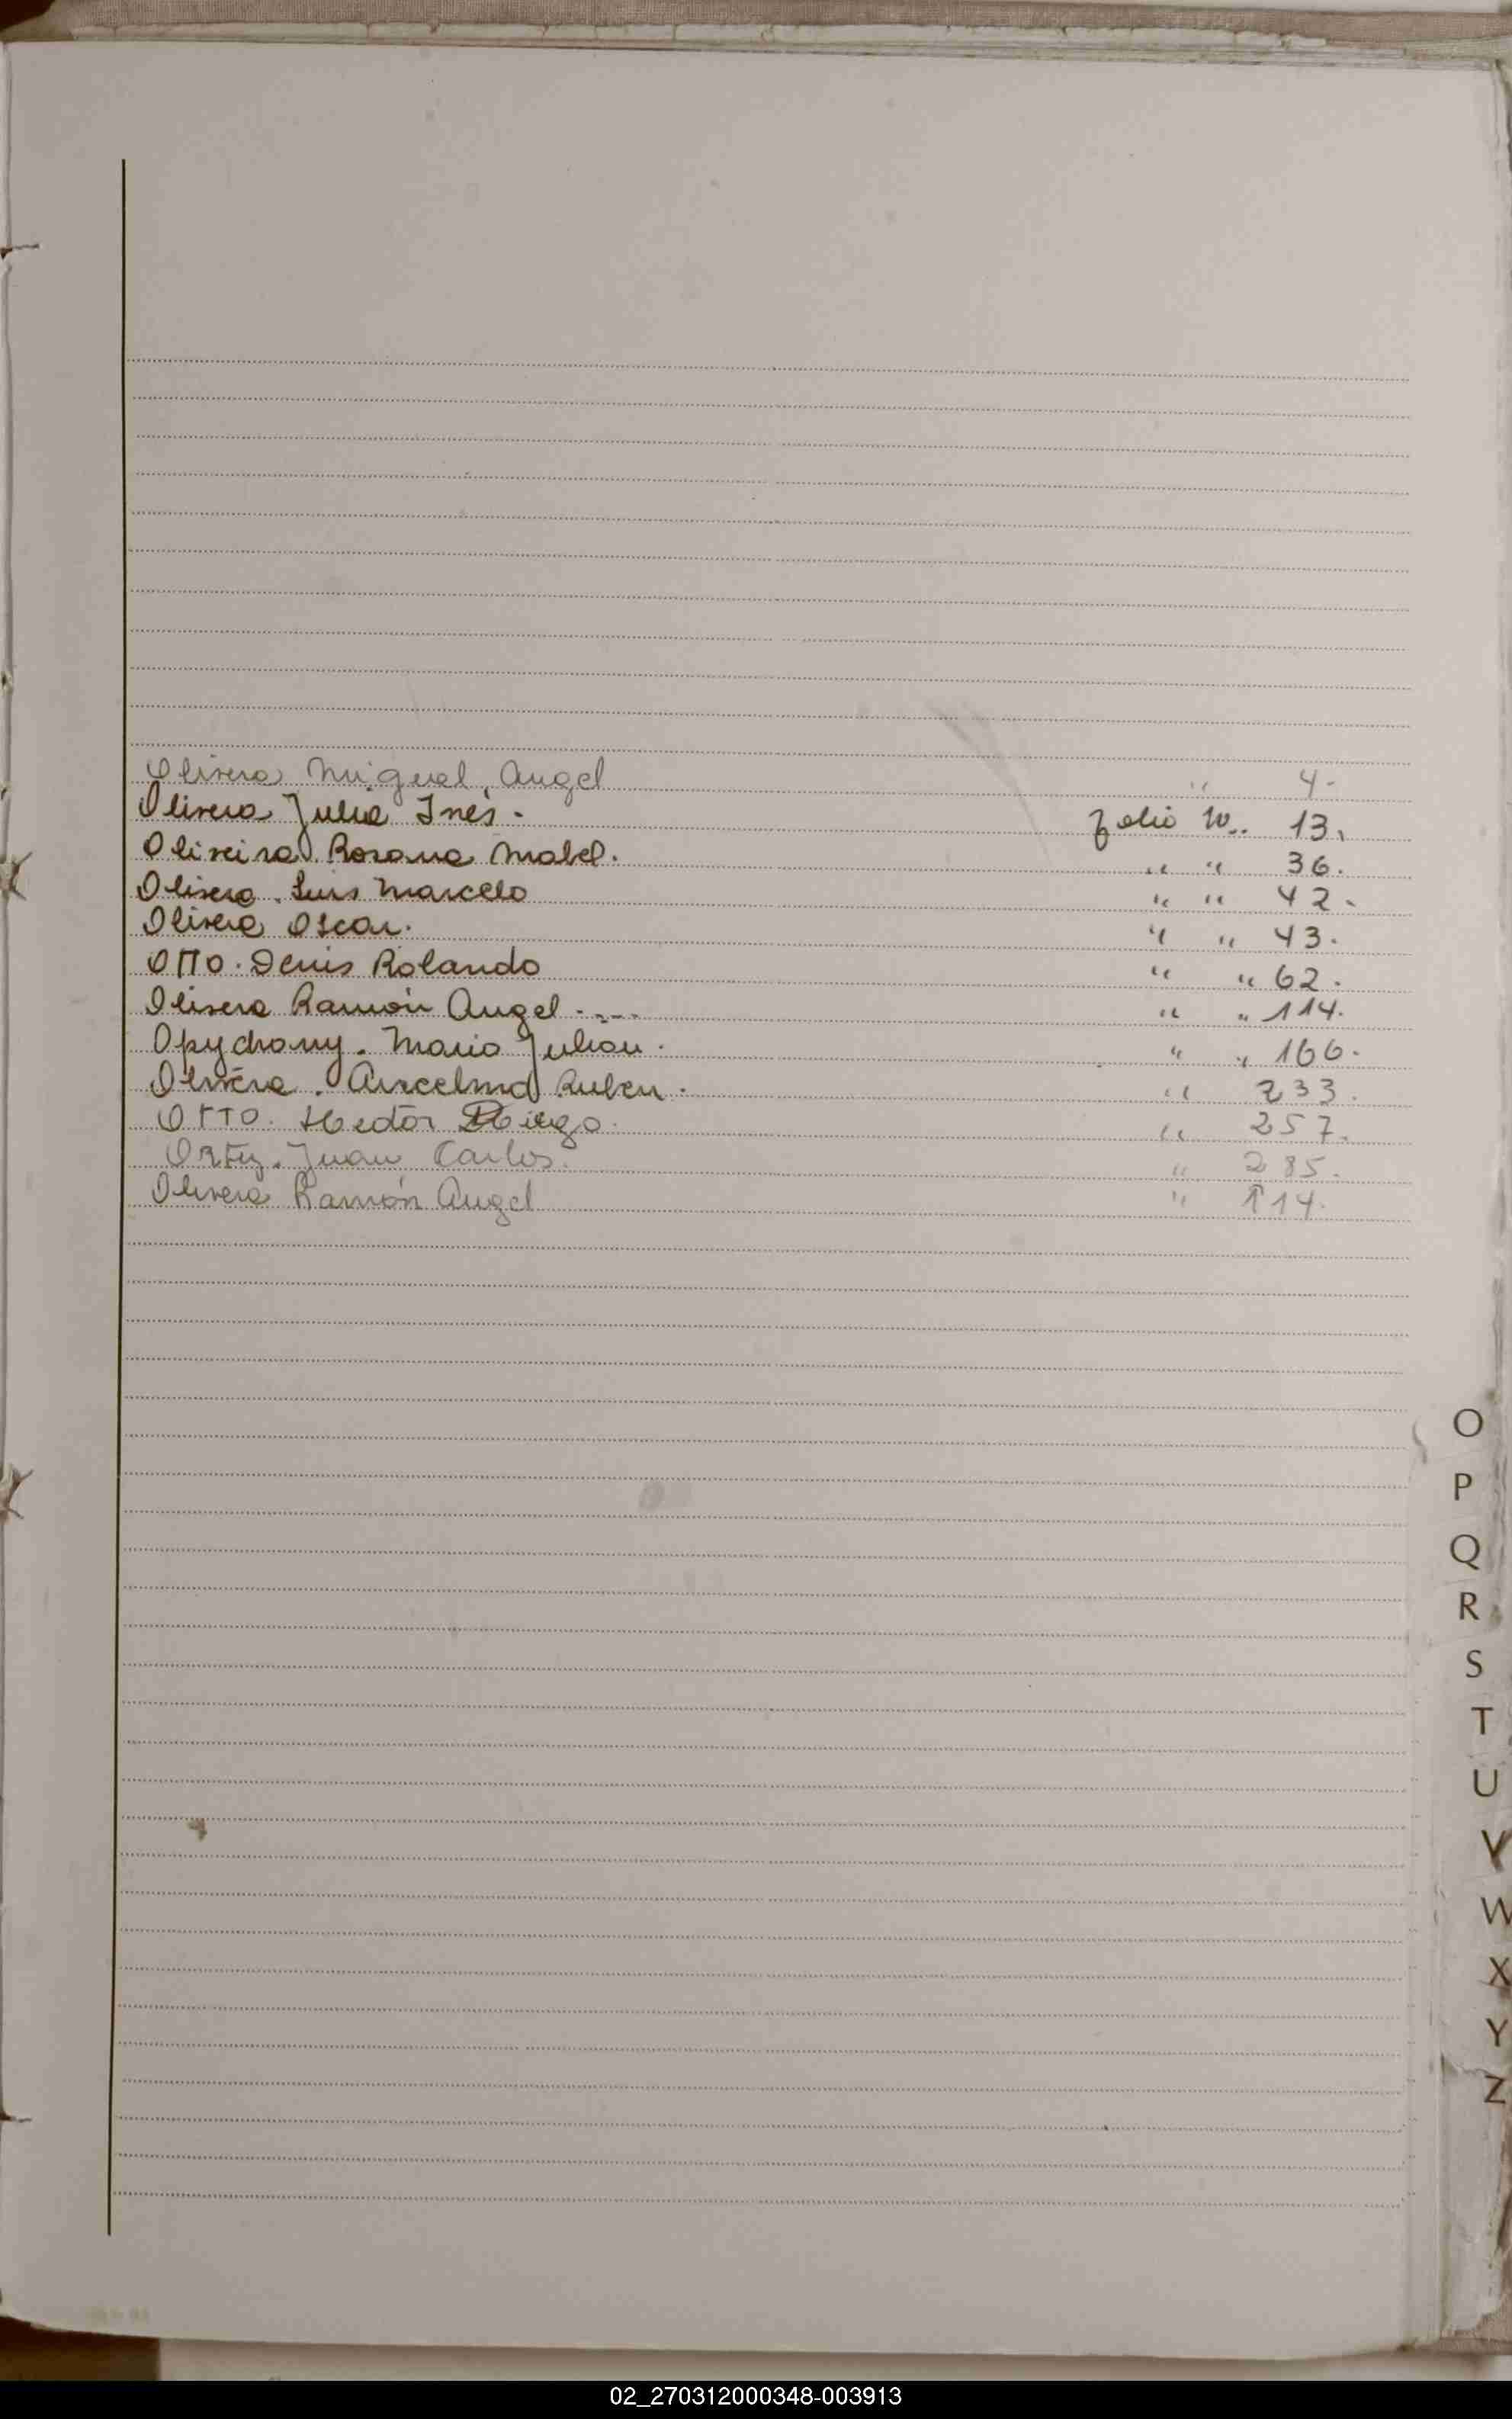 Olivera Miguel, Angel " 4-
Olivera Julia Inés. - folio N.. 13.
Oliveira Rosana Mabel. " " 36.
Olivera. Luis Marcelo " " 42-
Olivera Oscar. " " 43.
OTTO. Denis Rolando " " 62.
Olivera Ramón Angel. - - - " " 114.
Opychany. Mario Julian. " " 166.
Olivera. Ancelmo Ruben. " 233.
OTTO. Hector Diego. " 257.
Ortiz. Juan Carlos. " 285.
Olivera Ramón Angel " 114.
O
P
Q
R
S
T
U
V
W
X
Y
Z
02_270312000348-003913